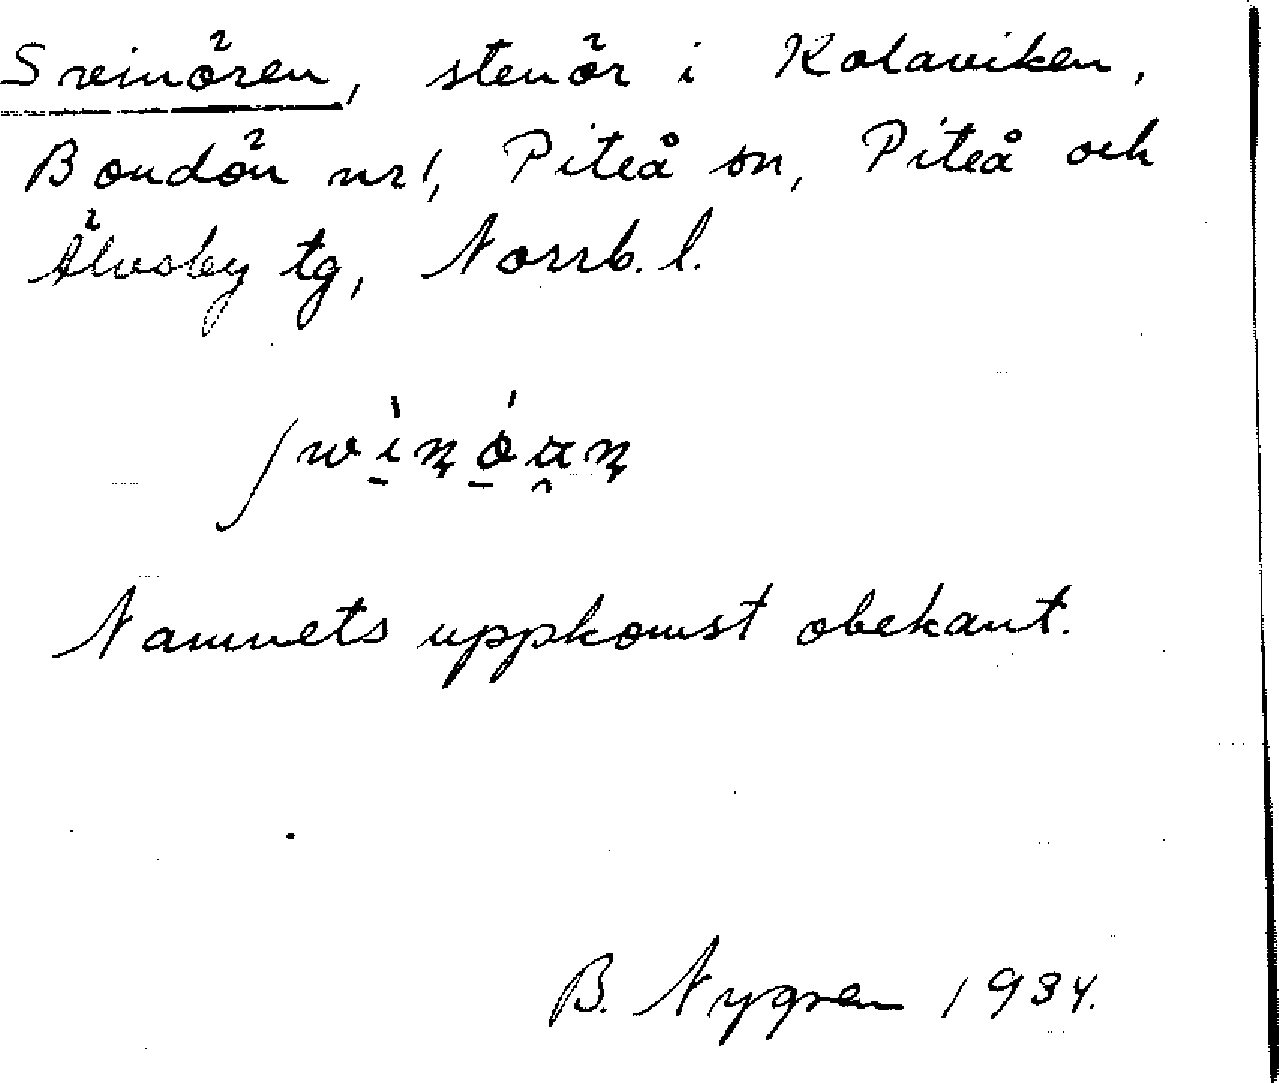 Sveinören, stenör i Kolaviken,
Bondön nr 1, Piteå sn, Piteå och
Älvsby tg, Norrb. l.
Namnets uppkomst obekant.
B. Nygren 1934.